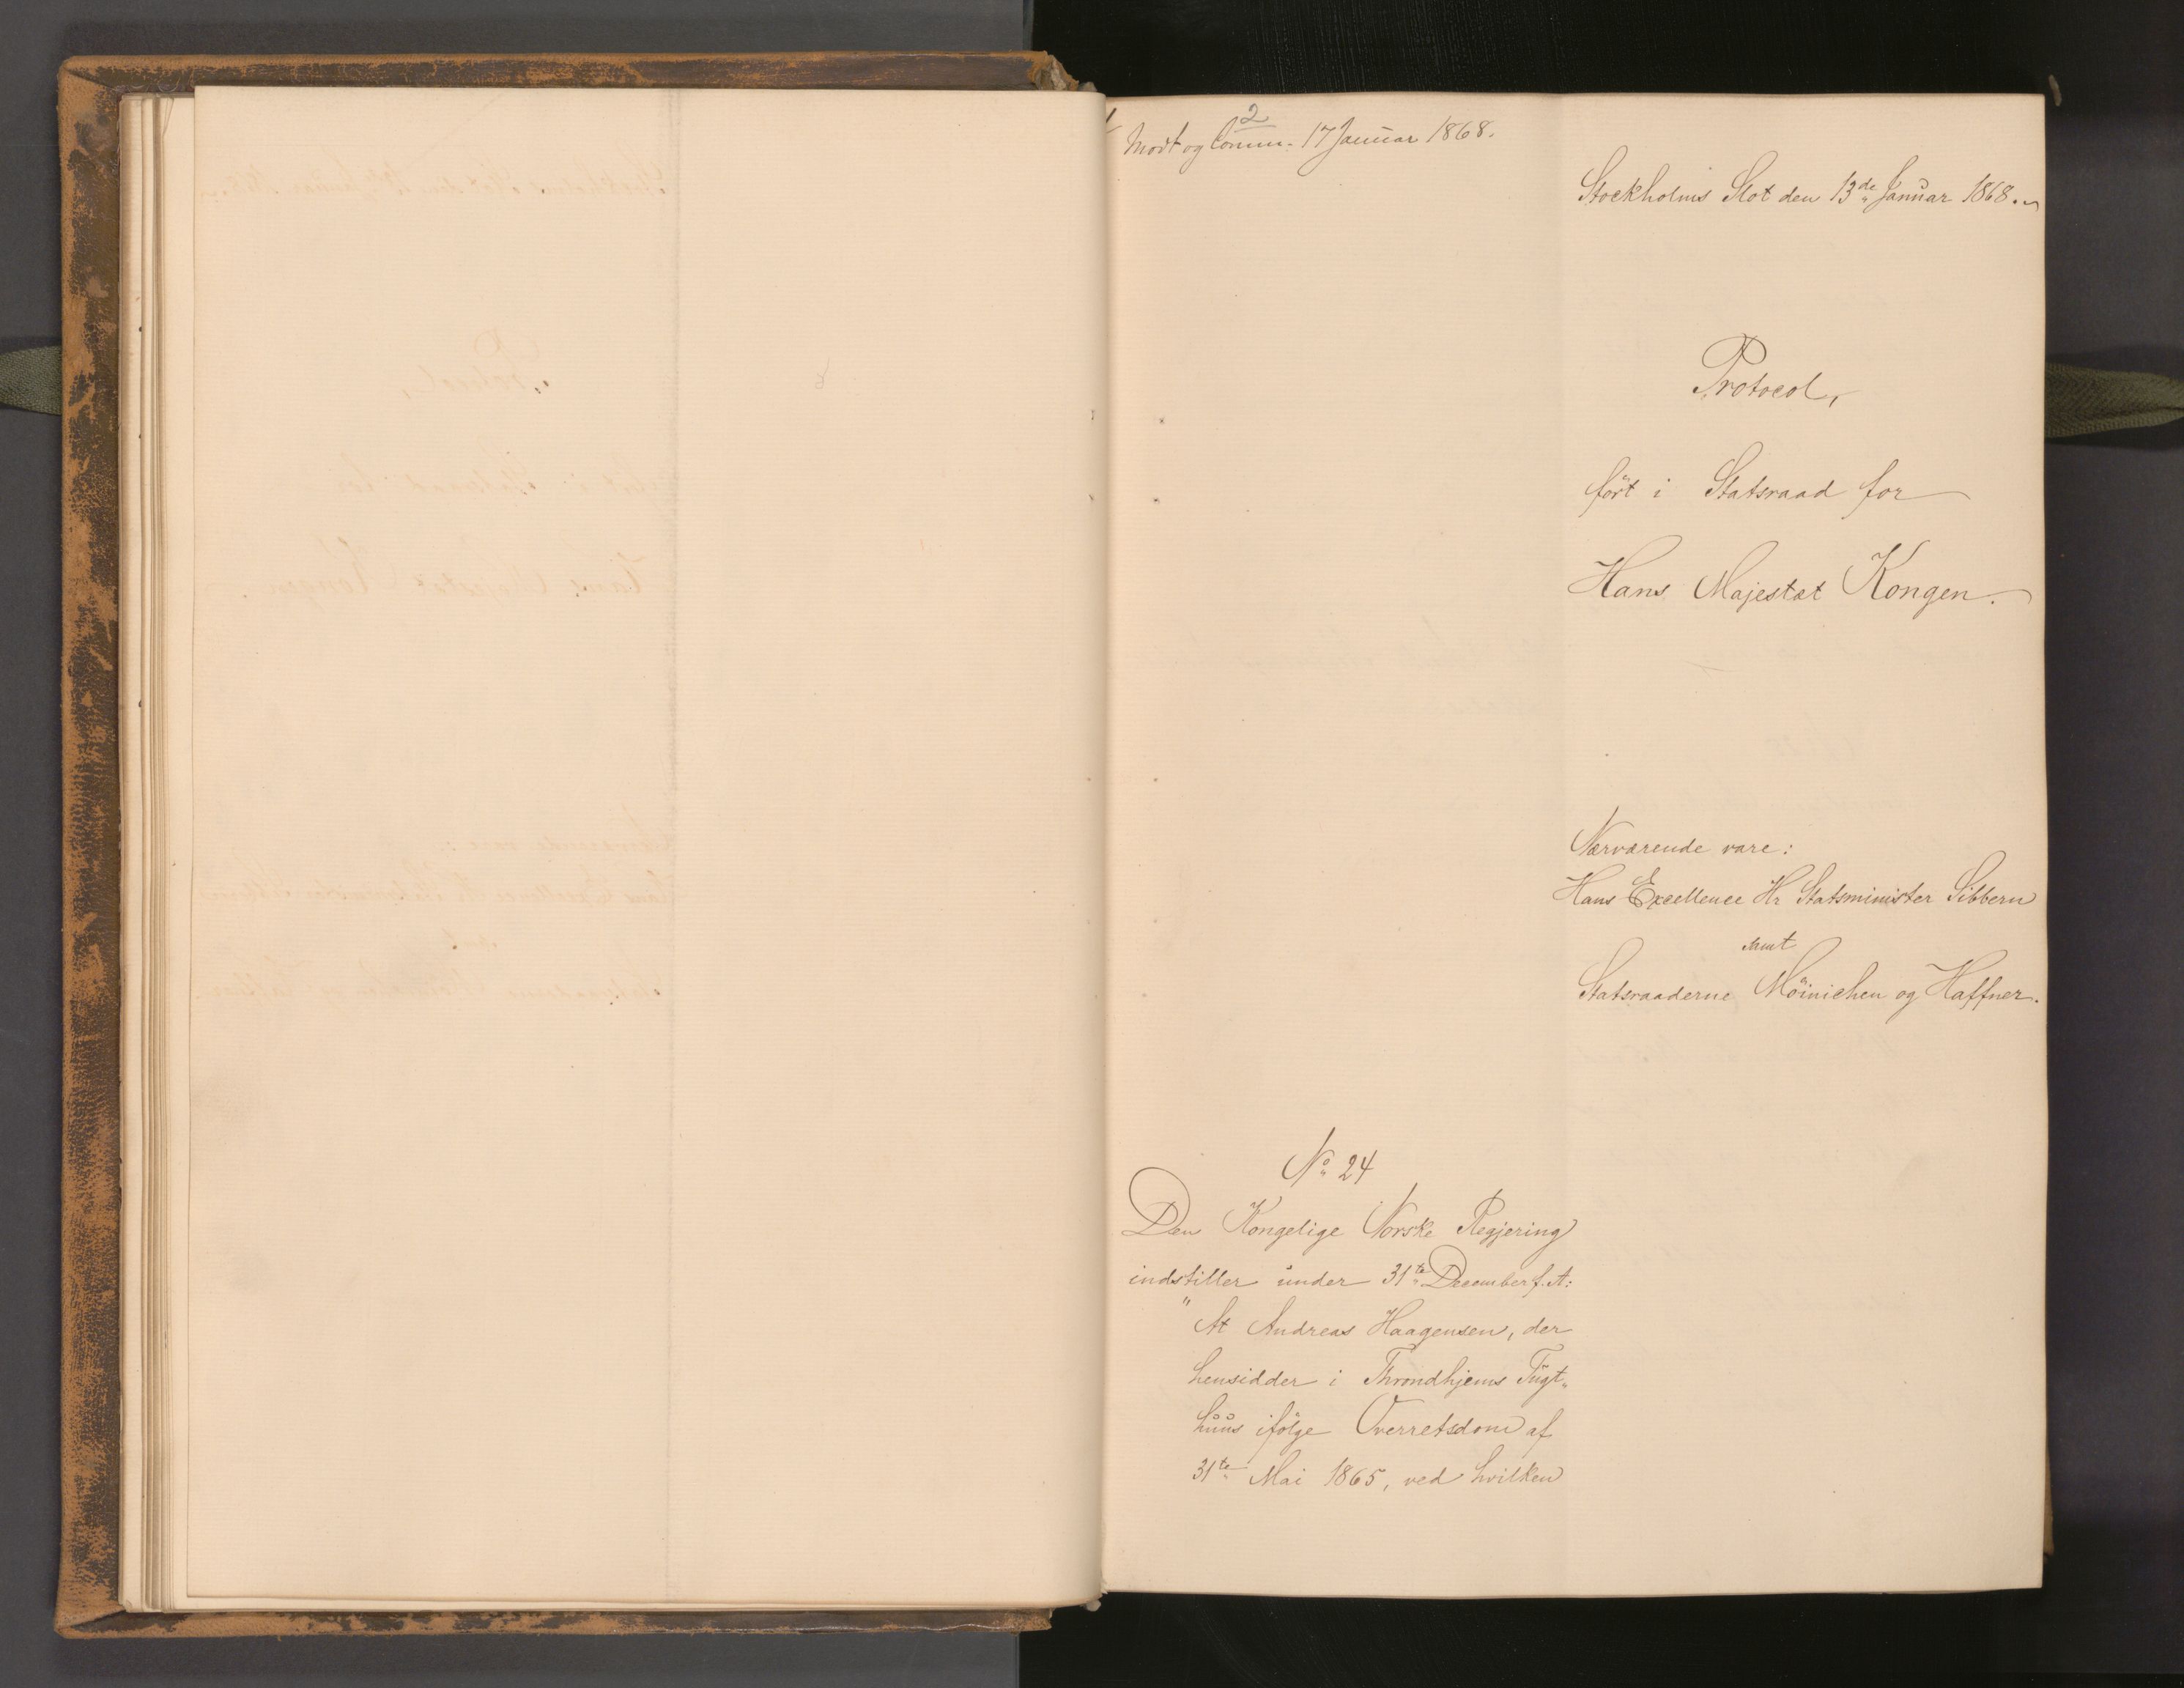 2
Modt og Comm. 17 Januar 1868.
Stockholms Slot den 13de Januar 1868.
Protocol,
ført i Statsraad for
Hans Majestæt Kongen.
Nærværende vare:
Hans Excellence Hr Statsminister Sibbern
samt
Statsraaderne Möinichen og Haffner.
No 24
Den Kongelige Norske Regjering
indstiller under 31te December f. A:
"At Andreas Haagensen, der
hensidder i Throndhjems Tugt„
huus ifølge Overretsdom af
31te Mai 1865, ved hvilken